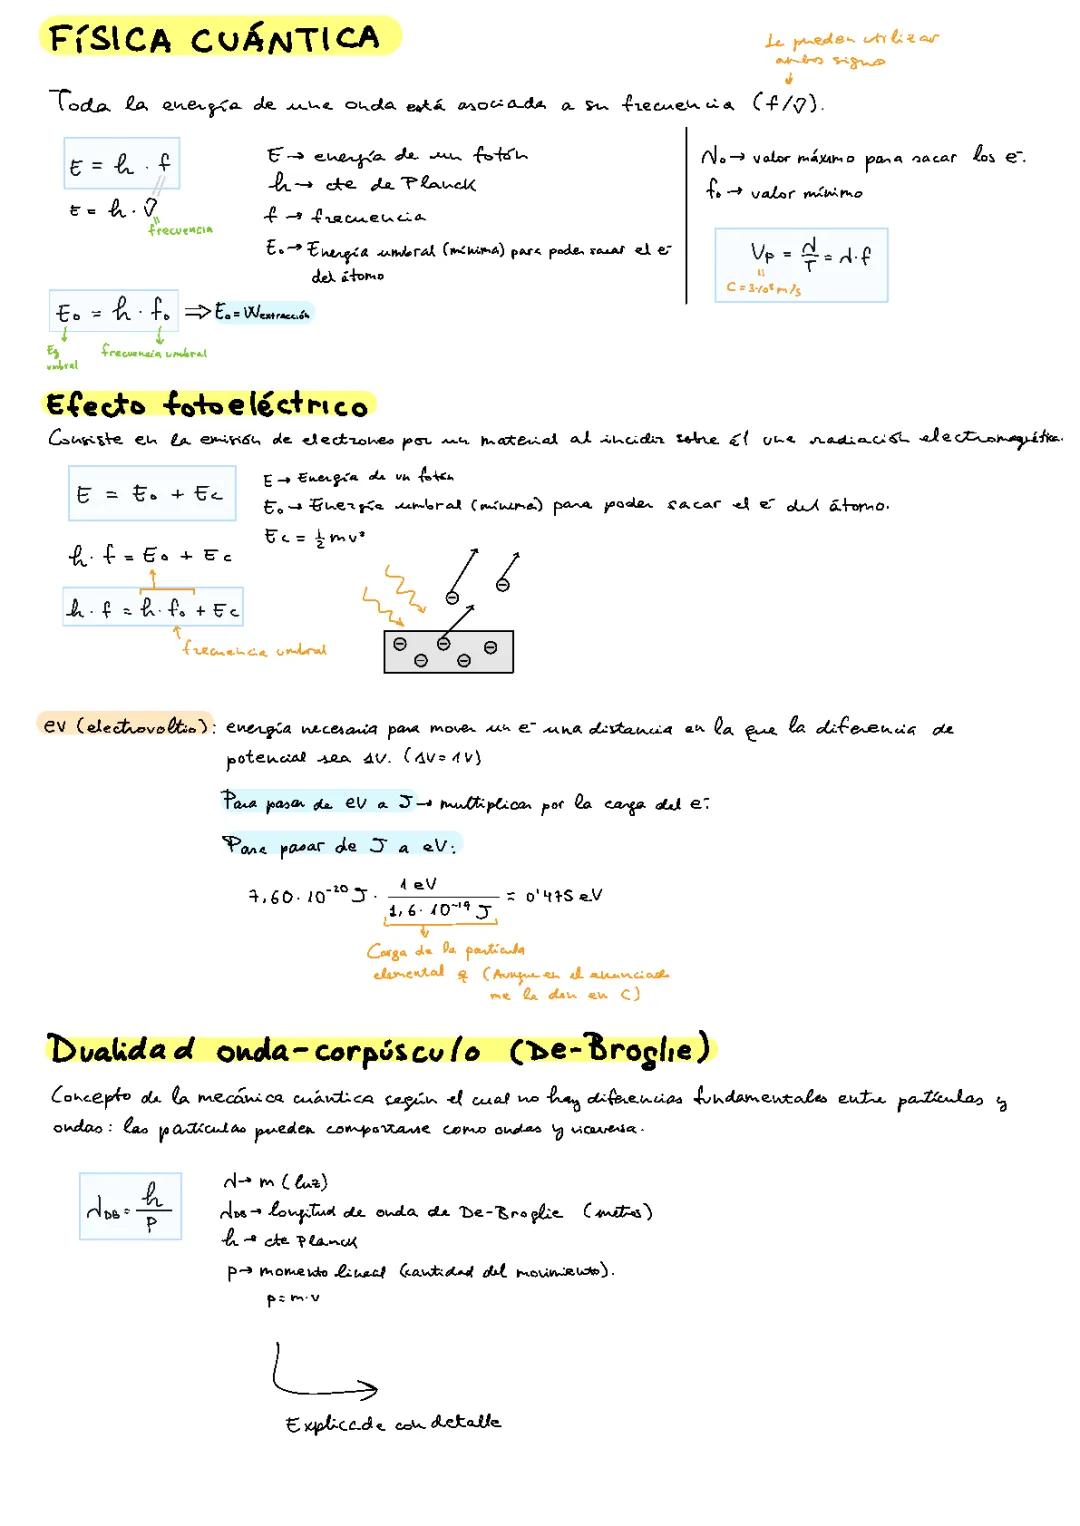 FÍSICA CUÁNTICA
Se pueden utilizar
ambos signo
Toda la energía de una onda está asociada a su frecuencia (f/ν).
E = h · f
E = h · ν
frecuencia
E → energía de un fotón
h → cte de Planck
f → frecuencia
E₀ → Energía umbral (mínima) para poder sacar el e⁻
del átomo
λ₀ → valor máximo para sacar los e⁻.
f₀ → valor mínimo
Vp = λ/T = λ·f
C = 3·10⁸ m/s
E₀ = h · f₀ ⇒ E₀ = Wextracción
Eg
umbral
frecuencia umbral
Efecto fotoeléctrico
Consiste en la emisión de electrones por un material al incidir sobre él una radiación electromagnética.
E = E₀ + Ec
E → Energía de un fotón
E₀ → Energía umbral (mínima) para poder sacar el e⁻ del átomo.
Ec = ½ mv²
h · f = E₀ + Ec
h · f = h · f₀ + Ec
frecuencia umbral
ev (electrovoltio): energía necesaria para mover un e⁻ una distancia en la que la diferencia de
potencial sea 1V. (ΔV = 1V)
Para pasar de eV a J → multiplicar por la carga del e⁻.
Para pasar de J a eV:
7,60 · 10⁻²⁰ J · 1 eV / 1,6 · 10⁻¹⁹ J = 0'475 eV
Carga de la partícula
elemental q (Aunque en el enunciado
me la dan en C)
Dualidad onda-corpúsculo (De-Broglie)
Concepto de la mecánica cuántica según el cual no hay diferencias fundamentales entre partículas y
ondas: las partículas pueden comportarse como ondas y viceversa.
λDB = h/P
λ → m (luz)
λDB → longitud de onda de De-Broglie (metros)
h → cte Planck
p → momento lineal (cantidad del movimiento).
p = m·v
Explicade con detalle